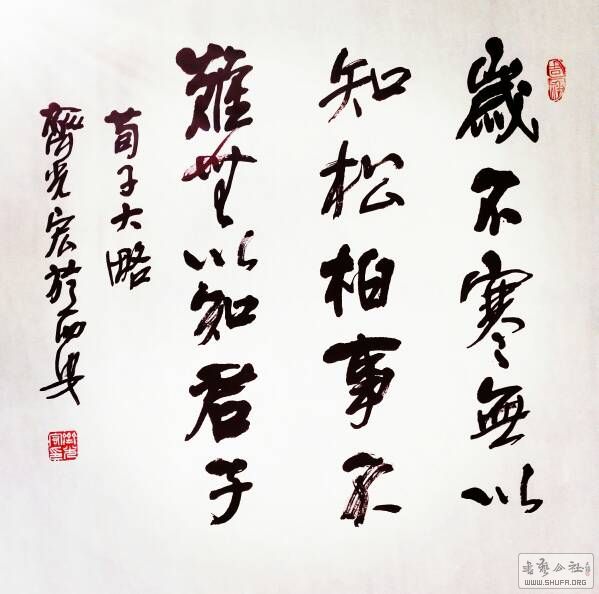 歲不寒無以
知松柏事不
難無以知君子
荀子大略
齊光宏於西
吉祥
書藝公社
WWW.SHUFA.ORG